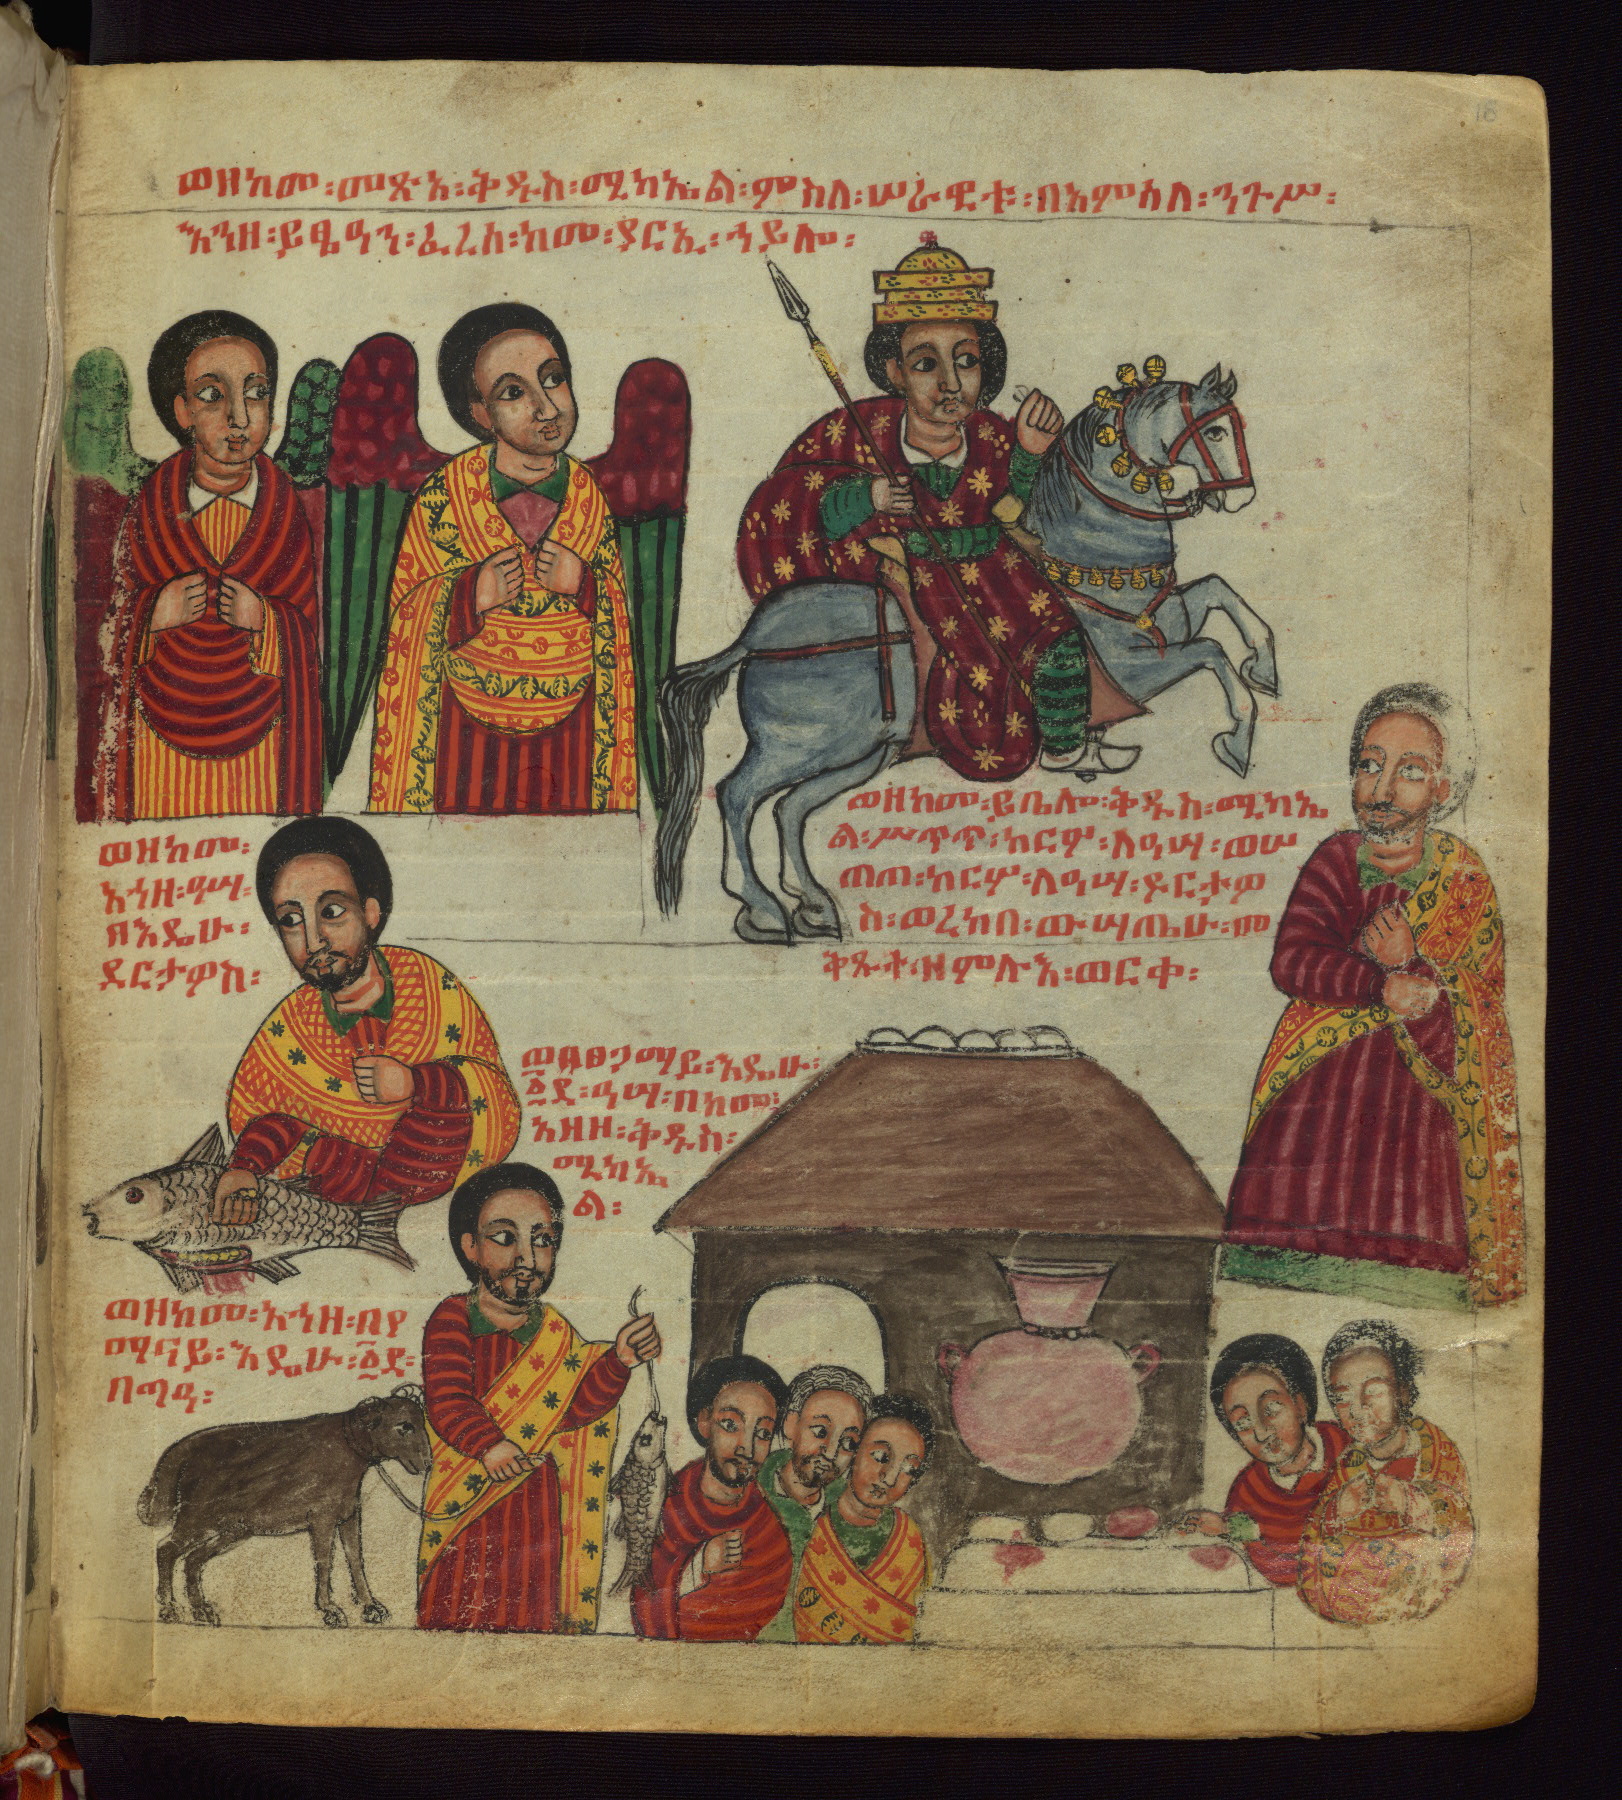 ወዘከመ፡መጽአ፡ቅዱስ፡ሚካኤል፡ምስለ፡ሠራዊቱ፡በአምሳለ፡ንጉሥ፡
እንዘ፡ይፄዓን፡ፈረሰ፡ከመ፡ያርኢ፡ኀይሎ፡
ወዘከመ፡ይቤሎ፡ቅዱስ፡ሚካኤ
ል፡ሥጥጥ፡ከርሦ፡ለዓሣ፡ወሠ
ጠጠ፡ከርሦ፡ለዓሣ፡ዱርታዎ
ስ፡ወረከበ፡ውሣጤሁ፡መ
ቅጹተ፡ዘምሉእ፡ወርቀ፡
ወዘከመ፡
አኀዘ፡ዓሣ፡
በእዴሁ፡
ዱርታዎስ፡
ወበፀጋማይ፡እዴሁ፡
፩ደ፡ዓሣ፡በከመ፡
አዘዘ፡ቅዱስ፡
ሚካኤ
ል፡
ወዘከመ፡አኀዘ፡በየ
ማናይ፡እዴሁ፡፩ደ፡
በግዓ፡
16